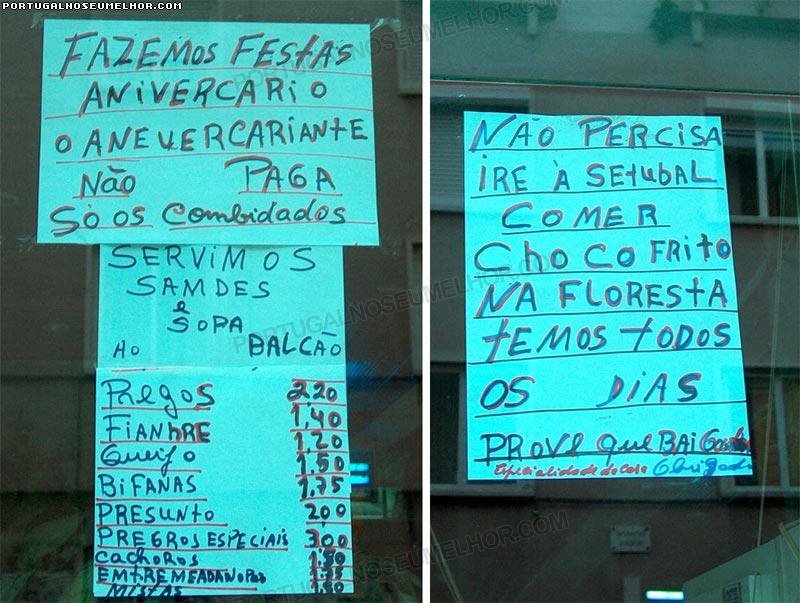 PORTUGALNOSEUMELHOR.COM
FAZEMOS FESTAS
ANIVERCARIO
O ANEVERCARIANTE
NÃO PAGA
SÓ OS COMBIDADOS
SERVIMOS
SAMDES
e
SOPA
AO BALCÃO
PREGOS 2,20
FIAMBRE 1,40
QUEIJO 1,20
1,50
BIFANAS 1,75
PRESUNTO 2,00
PREGROS ESPECIAIS 3,00
CACHOROS 1,50
MISTAS 1,50
NÃO PERCISA
IRE À SETUBAL
COMER
CHOCO FRITO
NA FLORESTA
TEMOS TODOS
OS DIAS
PROVE QUE BAI
Especialidade da Casa Obrigado
PORTUGALNOSEUMELHOR.COM